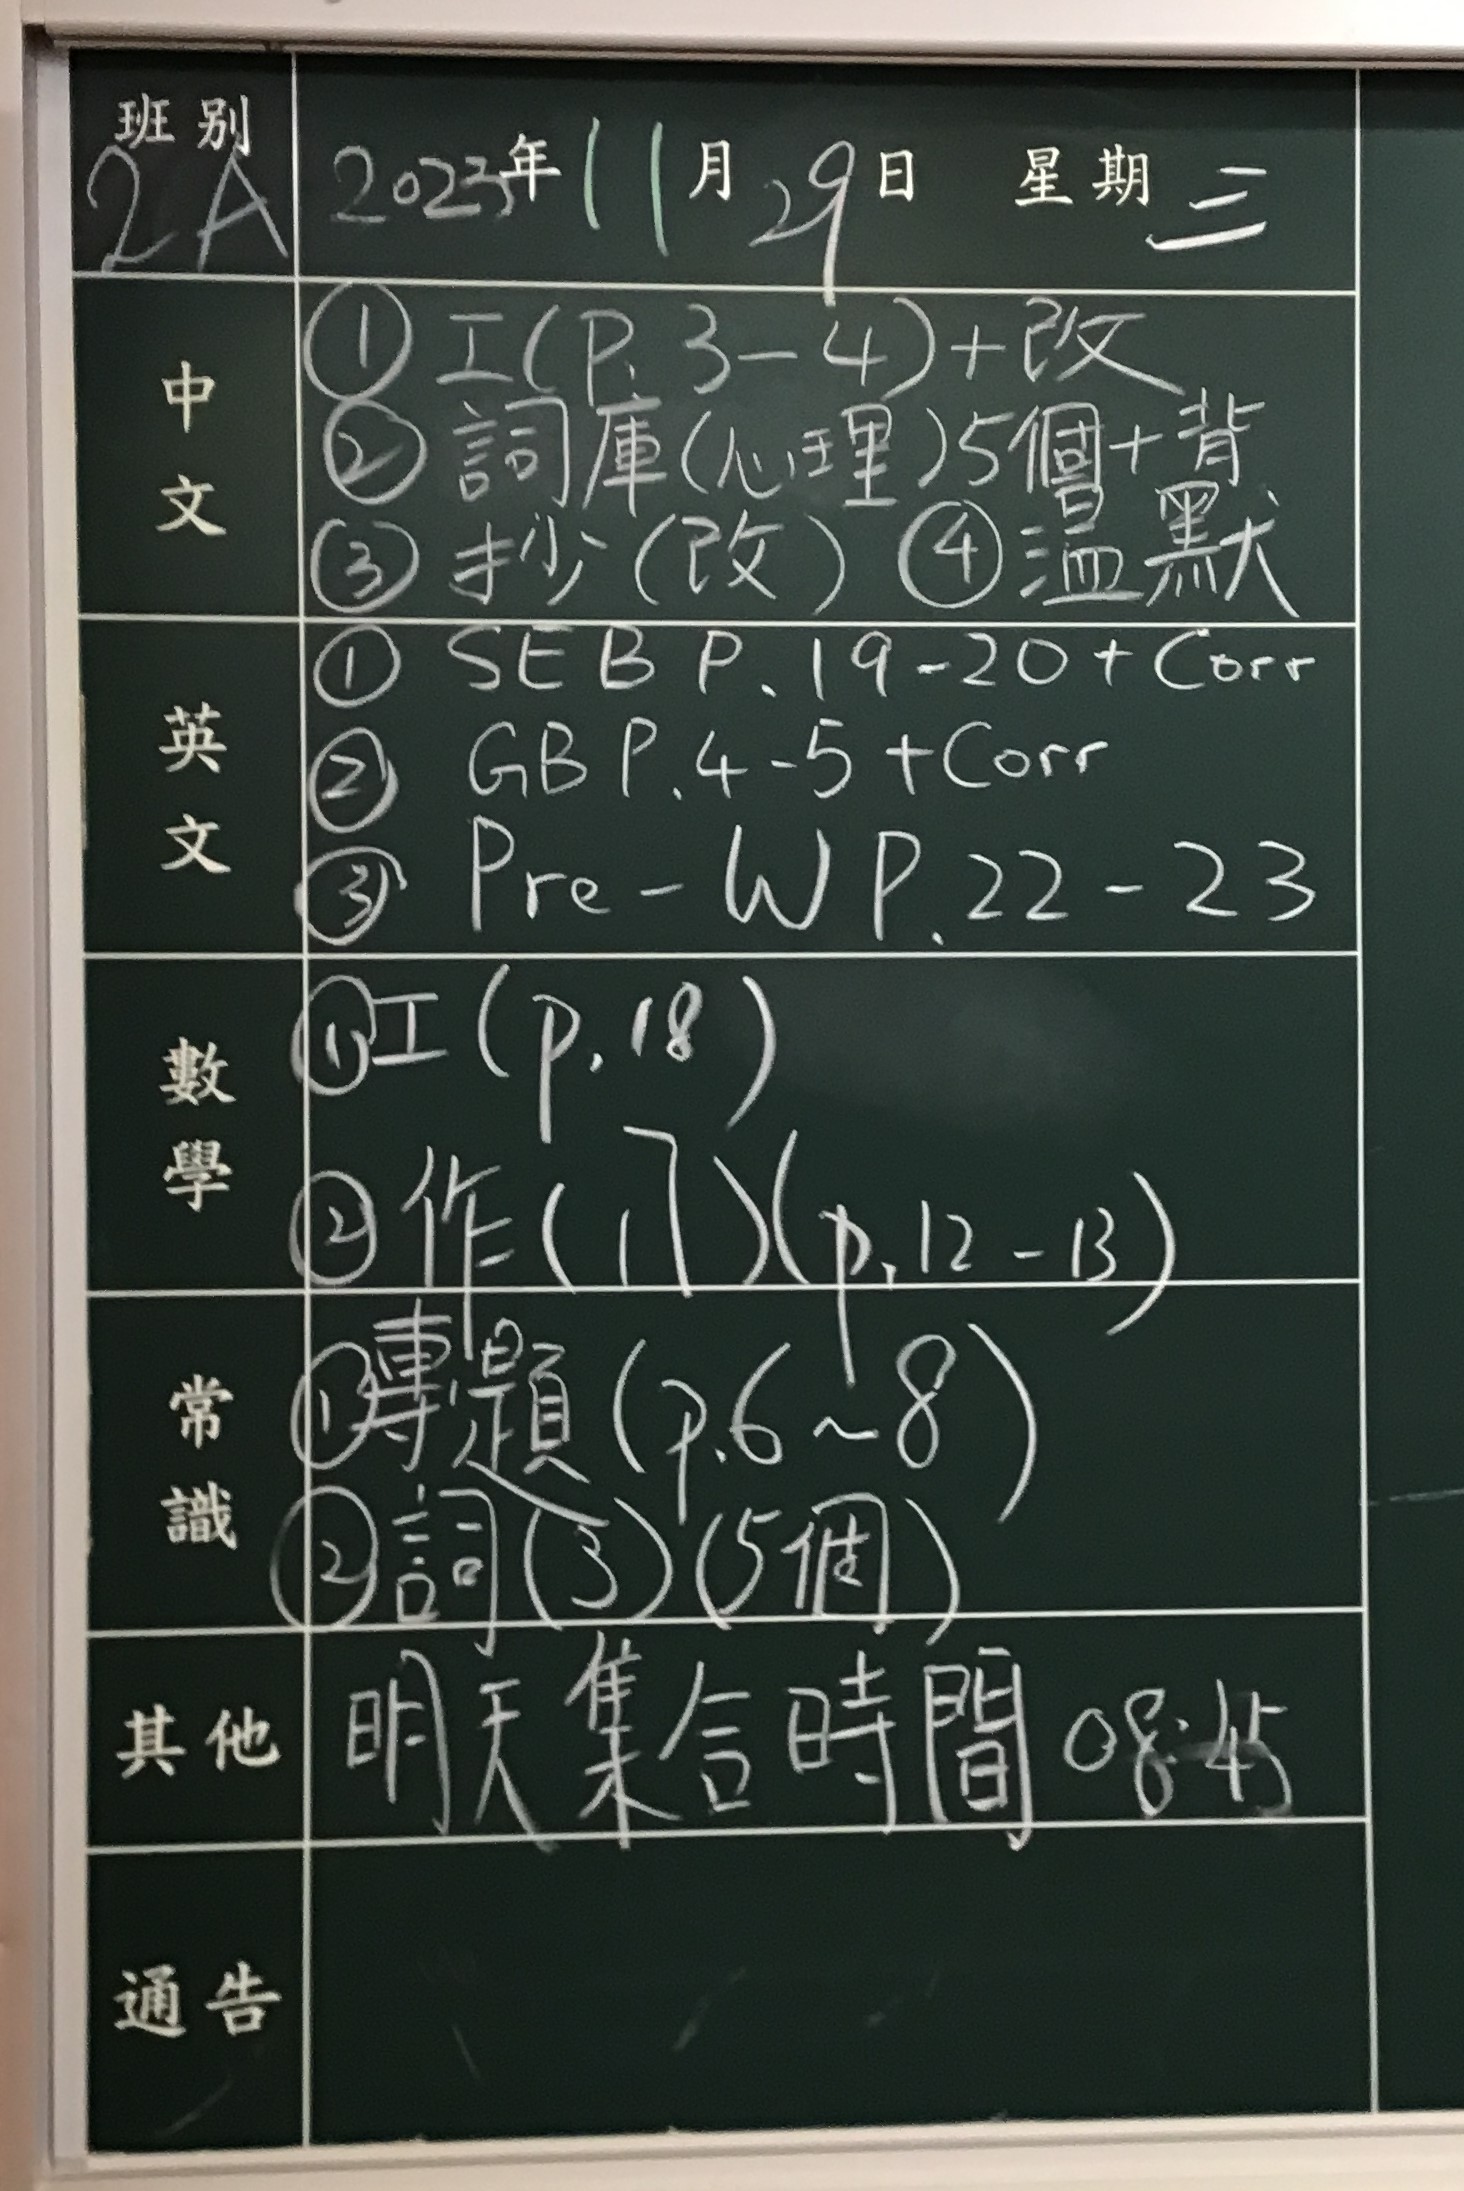 班別 2A 2023年11月29日 星期三
中文
① 工(P.3-4)+改
② 詞庫(心理)5個+背
③ 抄(改) ④溫默
英文
① SEB P.19-20+Corr
② GB P.4-5+Corr
③ Pre-W P.22-23
數學
① 工(p.18)
② 作(17)(p.12-13)
常識
① 專題(p.6~8)
② 詞(3)(5個)
其他 明天集合時間 08:45
通告